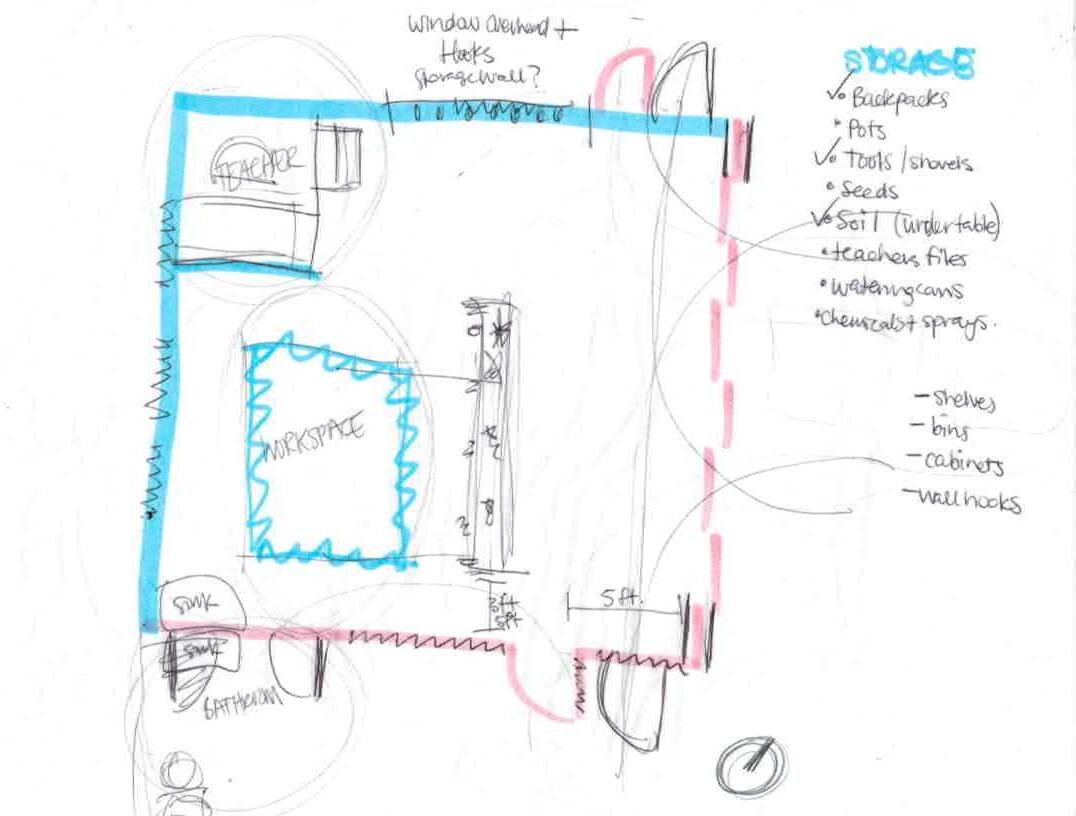 Window overhead +
Hooks
Storage wall?
STORAGE
Backpacks
• Pots
Tools / shovels
• Seeds
Soil (under table)
• teachers files
• watering cans
• Chemicals + sprays.
- Shelves
- bins
- cabinets
- Wall hooks
TEACHER
WORKSPACE
Sink
Sink
BATHROOM
3ft
5ft
5 ft.